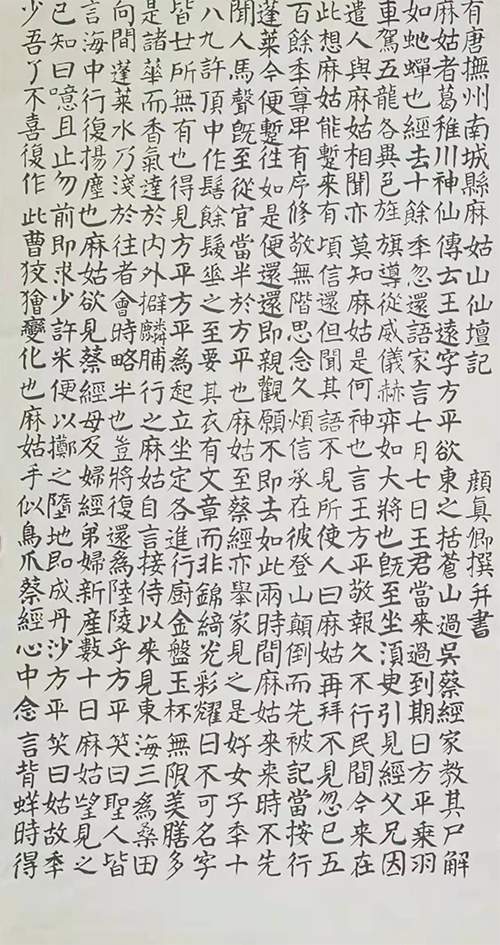 有唐撫州南城縣麻姑山仙壇記 顏真卿撰并書
麻姑者葛稚川神仙傳云王遠字方平欲東之括蒼山過吳蔡經家教其尸解
如虵蟬也經去十餘秊忽還語家言七月七日王君當来過到期日方平乗羽
車駕五龍各異色旌旗導從威儀赫弈如大將也旣至坐湏臾引見經父兄因
遣人與麻姑相聞亦莫知麻姑是何神也言王方平敬報久不行民間今来在
此想麻姑能蹔来有頃信還但聞其語不見所使人曰麻姑再拜不見忽已五
百餘秊尊卑有序修敬無階思念久煩信承在彼登山顛倒而先被記當按行
蓬萊今便蹔往如是便還還即親觀願不即去如此兩時間麻姑来来時不先
聞人馬聲旣至從官當半於方平也麻姑至蔡經亦舉家見之是好女子秊十
八九許頂中作髻餘髮垂之至要其衣有文章而非錦綺光彩耀日不可名字
皆世所無有也得見方平方平為起立坐定各進行廚金盤玉杯無限美膳多
是諸華而香氣達於内外擗麟脯行之麻姑自言接待以来見東海三為桑田
向間蓬萊水乃淺於往者會時略半也豈將復還為陸陵乎方平笑曰聖人皆
言海中行復揚塵也麻姑欲見蔡經母及婦經弟婦新産數十日麻姑望見之
已知曰噫且止勿前即求少許米便以擲之墮地即成丹沙方平笑曰姑故秊
少吾了不喜復作此曹狡獪變化也麻姑手似鳥爪蔡經心中念言背蛘時得